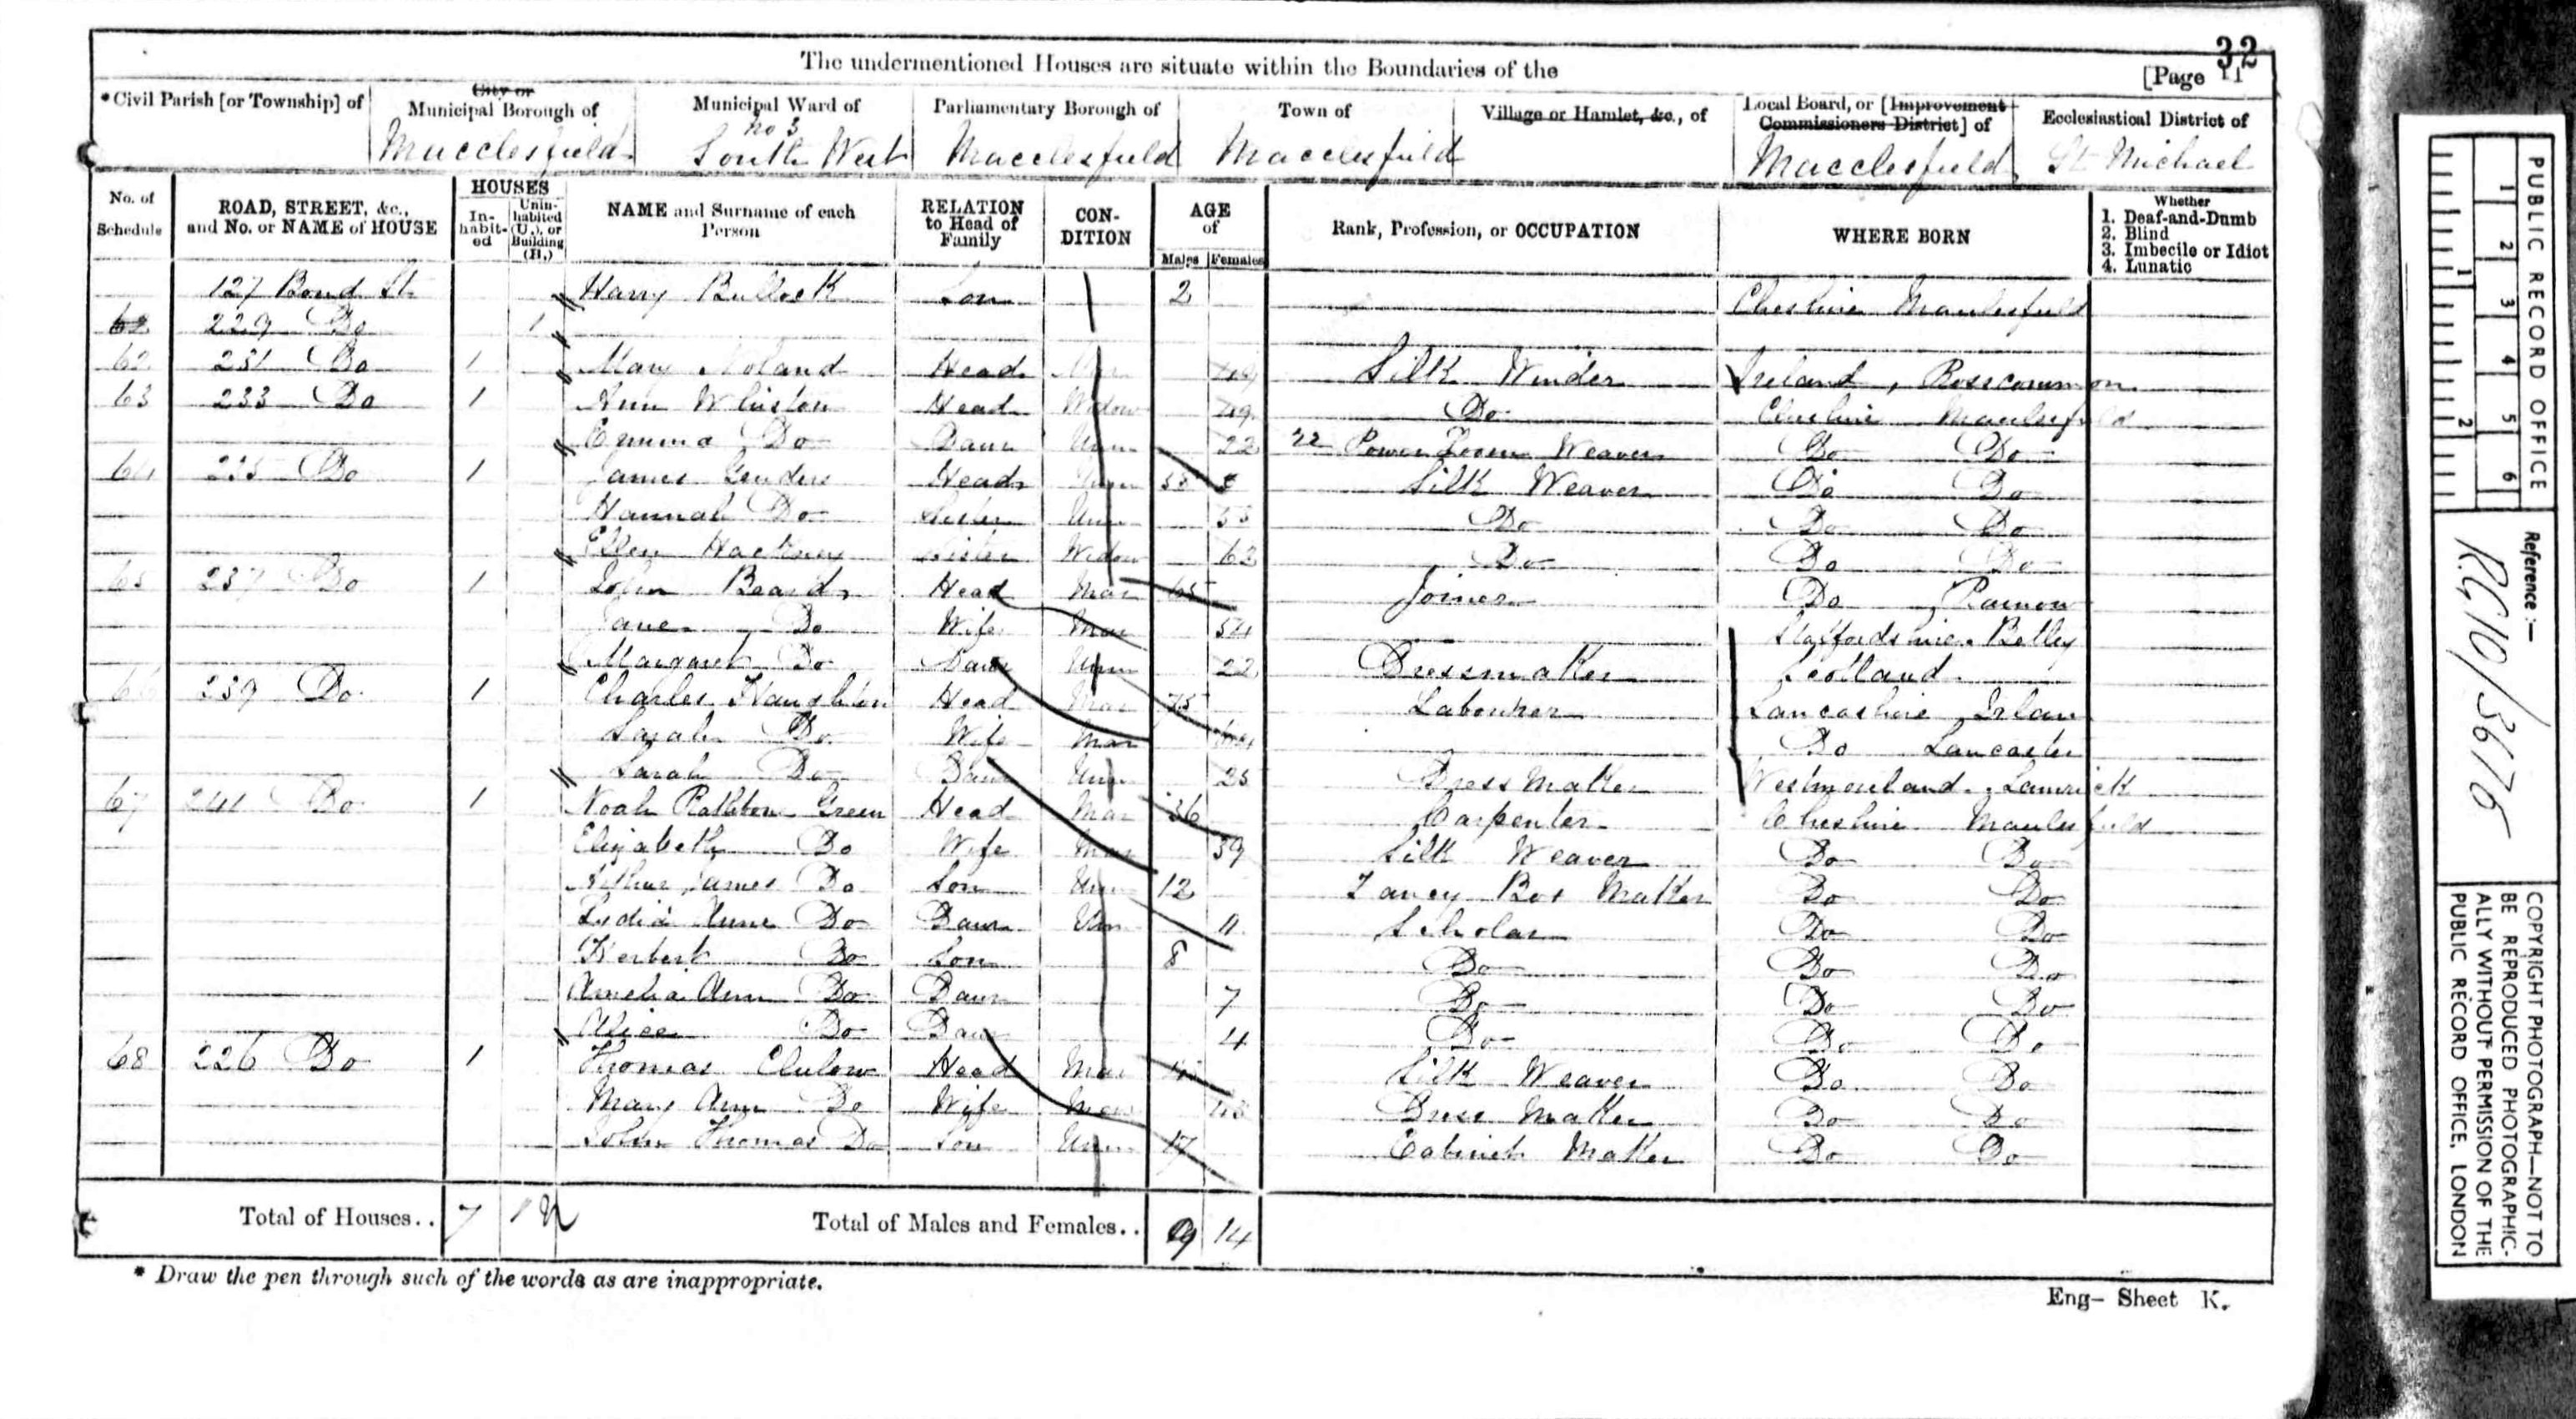 32
The undermentioned Houses are situate within the Boundaries of the
[Page 11
*Civil Parish [or Township] of
City or Municipal Borough of
Macclesfield
Municipal Ward of
No 3 South West
Parliamentary Borough of
Macclesfield
Town of
Macclesfield
Village or Hamlet, &c., of
Local Board, or [Improvement Commissioners District] of
Macclesfield
Ecclesiastical District of
St Michael
No. of Schedule
ROAD, STREET, &c., and No. or NAME of HOUSE
HOUSES
In-habit-ed
Unin-habited (U.), or Building (B.)
NAME and Surname of each Person
RELATION to Head of Family
CON-DITION
AGE of
Males Females
Rank, Profession, or OCCUPATION
WHERE BORN
Whether
1. Deaf-and-Dumb
2. Blind
3. Imbecile or Idiot
4. Lunatic
127 Bond St Harry Bullock Son 2 Cheshire Macclesfield
62 229 Do 1
62 231 Do 1 Mary Noland Head Silk Winder Ireland, Roscommon
63 233 Do 1 Ann Whiston Head Widow 49 Do Cheshire Macclesfield
Emma Do Daur Unm 22 Power Loom Weaver Do Do
64 235 Do 1 James Genders Head Unm Silk Weaver Do Do
Hannah Do Sister Unm 53 Do Do Do
Ellen Hackney Sister Widow 62 Do Do Do
65 237 Do 1 John Beard Head Mar 65 Joiner Do
Jane Do Wife Mar 54 Staffordshire Betley
Margaret Do Daur Unm 22 Dressmaker Scotland
66 239 Do 1 Charles Haughton Head Mar 75 Labourer Lancashire Irlam
Sarah Do Wife Mar Do Lancaster
Sarah Do Daur Unm 25 Dress Maker Westmorland
67 241 Do 1 Noah Rathbone Green Head Mar 36 Carpenter Cheshire Macclesfield
Elizabeth Do Wife Mar 39 Silk Weaver Do Do
Arthur James Do Son Unm 12 Fancy Box Maker Do Do
Lydia Anne Do Daur Unm 11 Scholar Do Do
Herbert Do Son 8 Do Do Do
Amelia Ann Do Daur 7 Do Do Do
Alice Do Daur 4 Do Do Do
68 226 Do 1 Thomas Clulow Head Mar Silk Weaver Do Do
Mary Ann Do Wife Mar 43 Dress Maker Do Do
John Thomas Do Son Unm 17 Cabinet Maker Do Do
Total of Houses.. 7 1
Total of Males and Females.. 9 14
* Draw the pen through such of the words as are inappropriate.
Eng- Sheet K.
PUBLIC RECORD OFFICE
1 2 3 4 5 6
1 2
Reference:-
RG10/3676
COPYRIGHT PHOTOGRAPH—NOT TO
BE REPRODUCED PHOTOGRAPHIC-
ALLY WITHOUT PERMISSION OF THE
PUBLIC RECORD OFFICE, LONDON